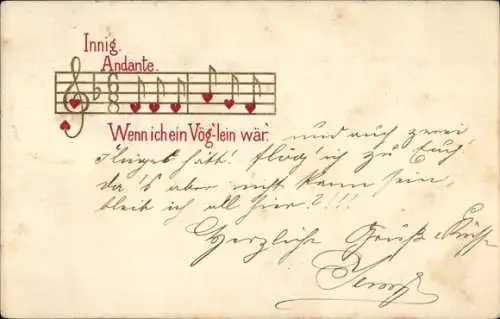 Innig.
Andante.
6
8
Wenn ich ein Vög'lein wär'. und auch zwei
Flügel hätt'! flög' ich zu Euch'
da's aber nicht kann sein,
bleib ich all hier?!!!
Herzliche Grüße & Küsse